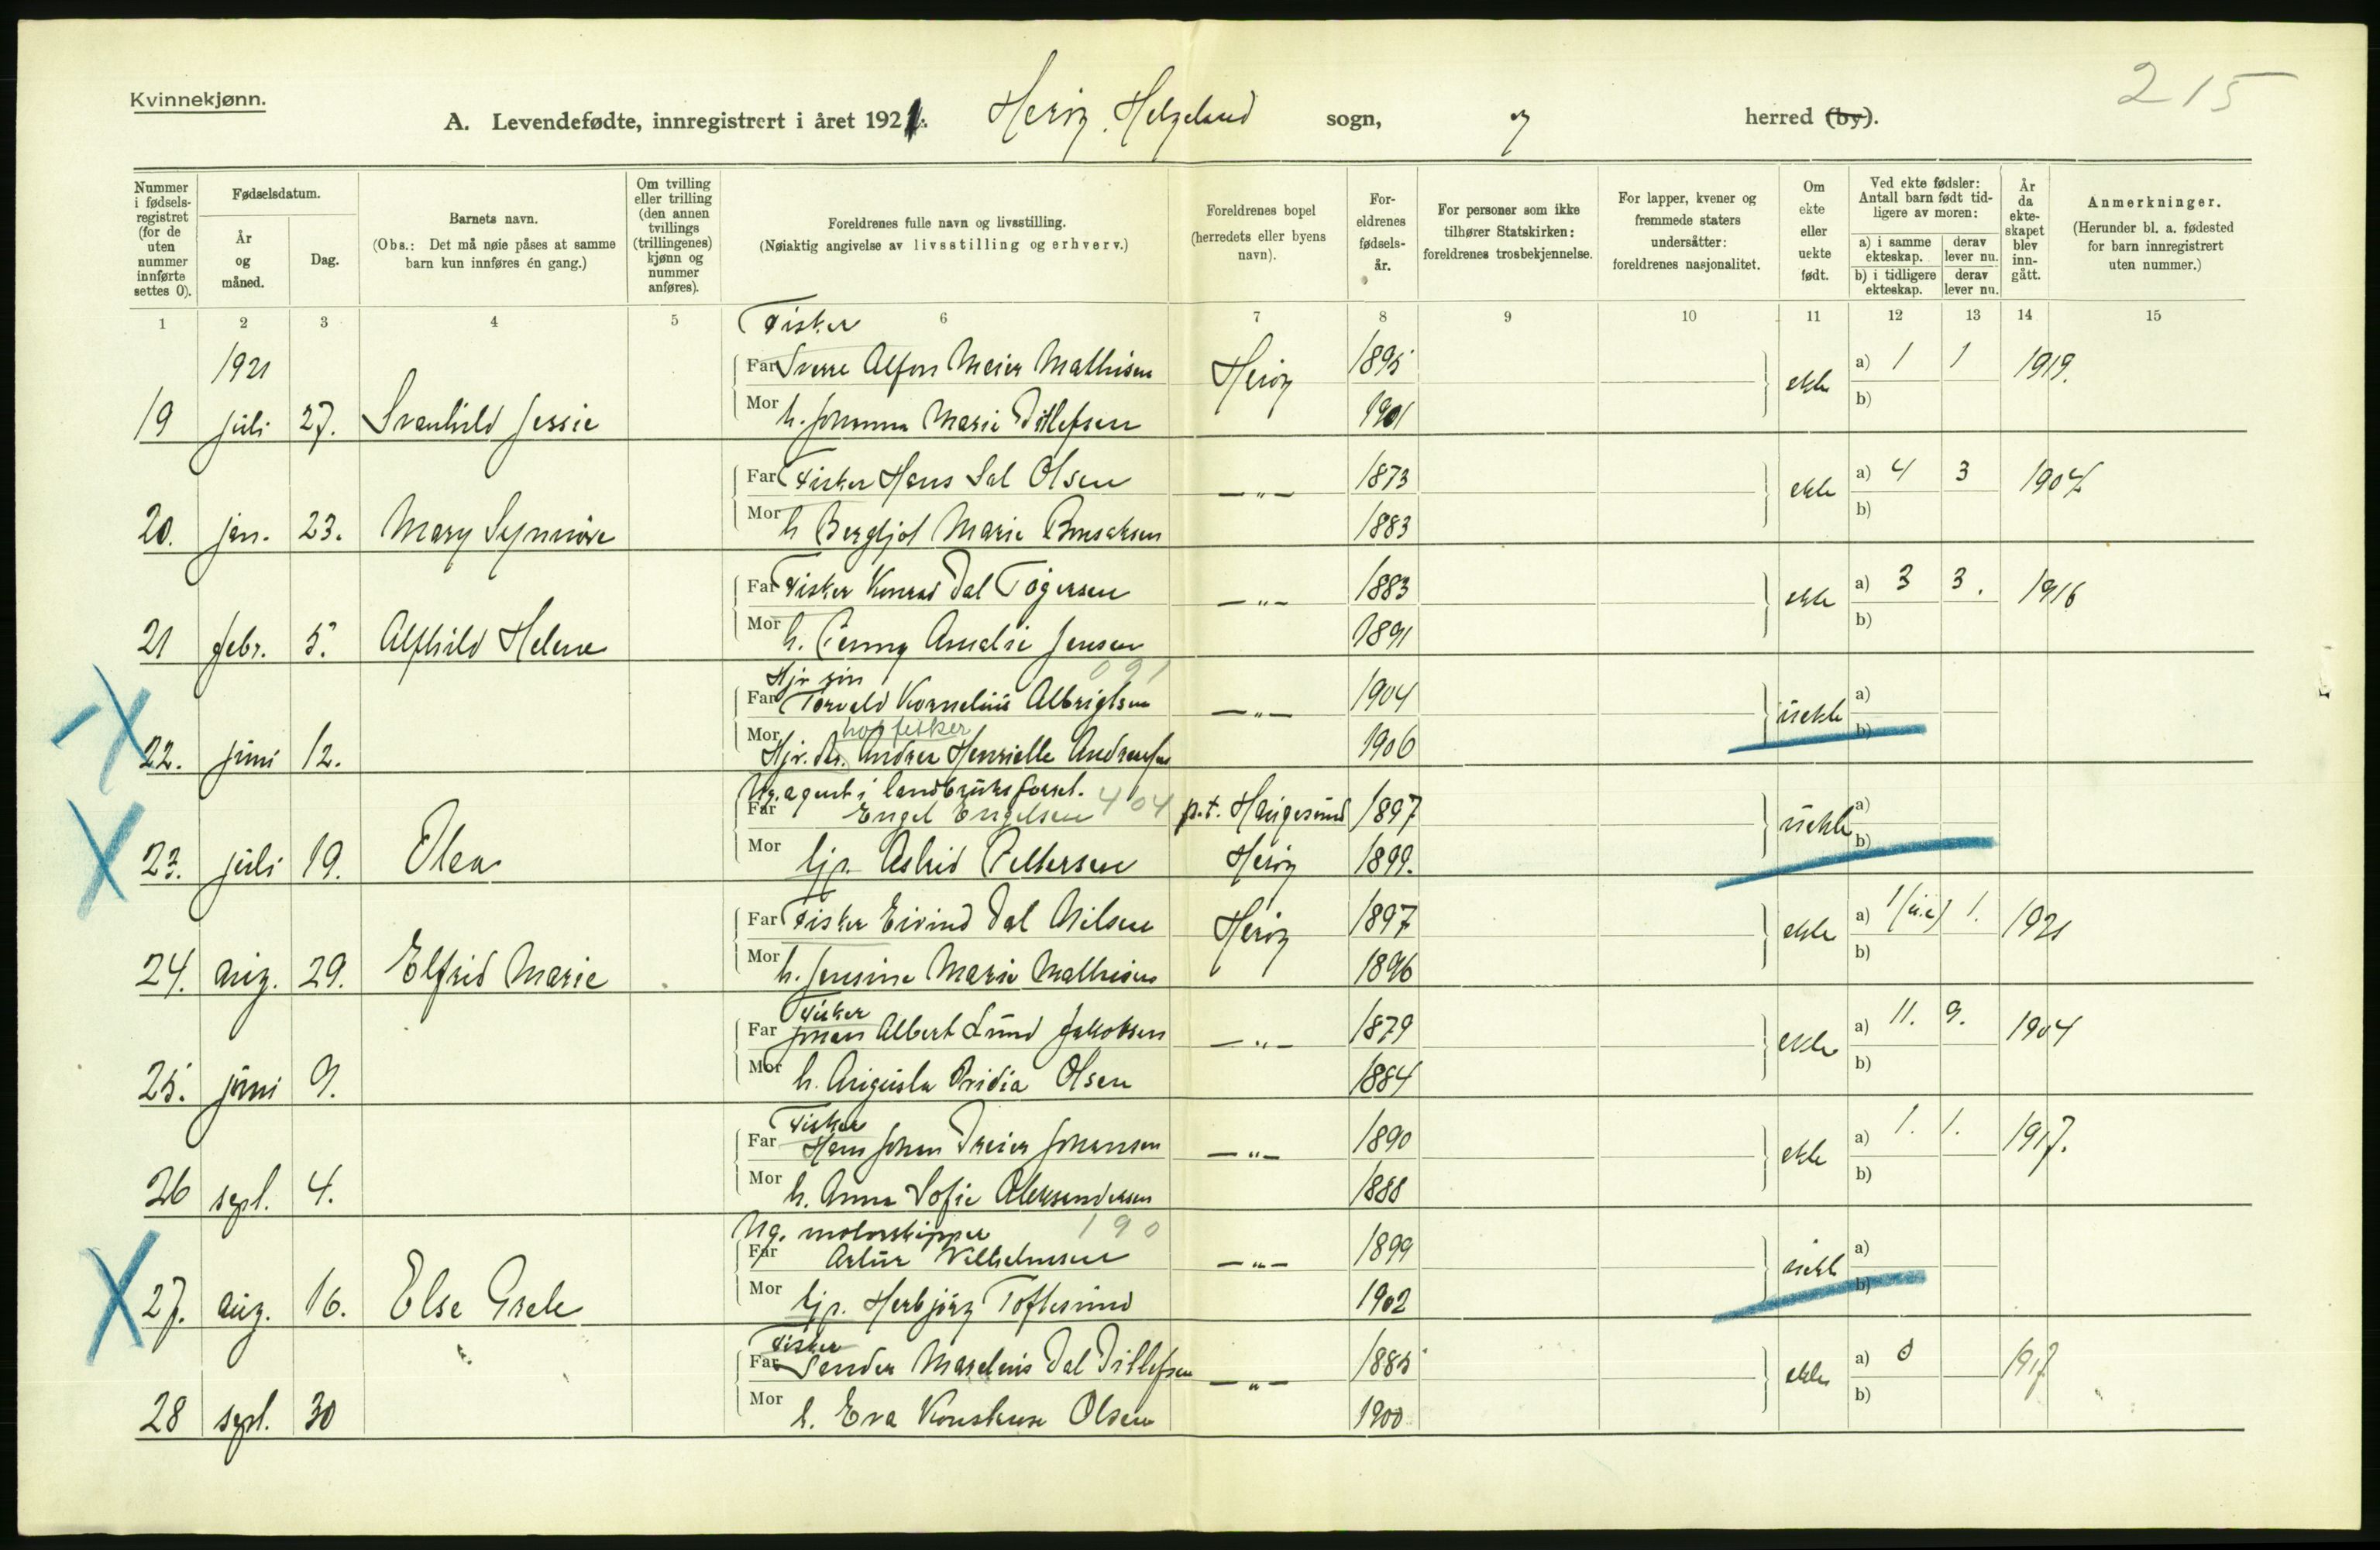 Kvinnekjønn.
215
A. Levendefødte, innregistrert i året 1921. Herøy, Helgeland sogn, herred (by).
Nummer i fødselsregistret (for de uten nummer innførte settes 0).
Fødselsdatum.
År og måned.
Dag.
Barnets navn.
(Obs.: Det må nøie påses at samme barn kun innføres én gang.)
Om tvilling eller trilling (den annen tvillings (trillingenes) kjønn og nummer anføres).
Foreldrenes fulle navn og livsstilling.
(Nøiaktig angivelse av livsstilling og erhverv.)
Foreldrenes bopel (herredets eller byens navn).
Foreldrenes fødselsår.
For personer som ikke tilhører Statskirken: foreldrenes trosbekjennelse.
For lapper, kvener og fremmede staters undersåtter: foreldrenes nasjonalitet.
Om ekte eller uekte født.
Ved ekte fødsler: Antall barn født tidligere av moren:
a) i samme ekteskap.
derav lever nu.
b) i tidligere ekteskap.
derav lever nu.
År da ekteskapet blev inngått.
Anmerkninger.
(Herunder bl. a. fødested for barn innregistrert uten nummer.)
1 2 3 4 5 6 7 8 9 10 11 12 13 14 15
Fisker
1921
Far Sverre Alfon Meier Mathisen Herøy 1895 ekte a) 1 1 1919.
19 juli 27. Svanhild Jessie Mor h. Johanna Marie Ditlefsen 1901 b)
Far Fisker Hans Sal Olsen —"— 1873 ekte a) 4 3 1907
20. jan. 23. Mary Synnøve Mor h Bergljot Marie 1883 b)
Far Fisker Konrad Dal Togersen —"— 1883 ekte a) 3 3. 1916
21 febr. 5. Alfhild Helene Mor h. Penny Amalie Jensen 1891 b)
Far Torvald Kornelius Albrigtsen —"— 1904 uekte a)
22. juni 12. Mor Hjv. dtr. Andrea Henriette Andreassen 1906 b)
Ug. agent i landbruksforret. 404
Far Engel Engelsen p.t. Haugesund 1897 uekte a)
23. juli 19. Olea Mor tjp. Astrid Pettersen Herøy 1899. b)
Far Fisker Eivind Dal Nilsen Herøy 1897 ekte a) 1 (u.e) 1. 1921
24. aug. 29. Elfrid Marie Mor h. Jensine Marie Mathisen 1896 b)
Fisker
Far Johan Albert Lund Jakobsen —"— 1879 ekte a) 11. 9. 1904
25. juni 9. Mor h. Augusta Olsen 1884 b)
Fisker
Far Hans Johan Dreier Johansen —"— 1890 ekte a) 1. 1. 1917.
26 sept. 4. Mor h. Anna Sofie Aleksandersen 1888 b)
Ug. motorskipper 190
Far Artur Vilhelmsen —"— 1899 uekte a)
27. aug. 16. Else Grete Mor tjp. Herbjørg Toftesund 1902 b)
Fisker
Far Sander Marelius Dal Ditlefsen —"— 1885 ekte a) 0 1917
28 sept. 30 Mor h. Eva Konstanse Olsen 1900 b)